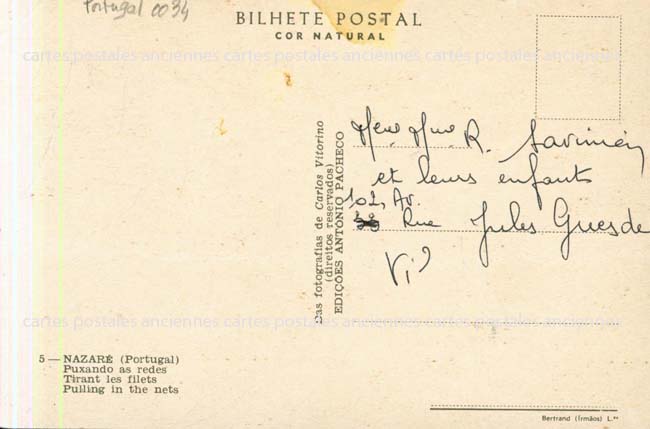 Portugal 0034
BILHETE POSTAL
COR NATURAL
cartes postales anciennes cartes postales anciennes cartes postales anciennes
Das fotografias de Carlos Vitorino
(direitos reservados)
EDIÇÕES ANTÓNIO PACHECO
R.
et leurs enfants
102, Av.
Rue Jules Guesde
cartes postales anciennes cartes postales anciennes cartes postales anciennes
5 — NAZARÉ (Portugal)
Puxando as redes
Tirant les filets
Pulling in the nets
Bertrand (Irmãos) L.da